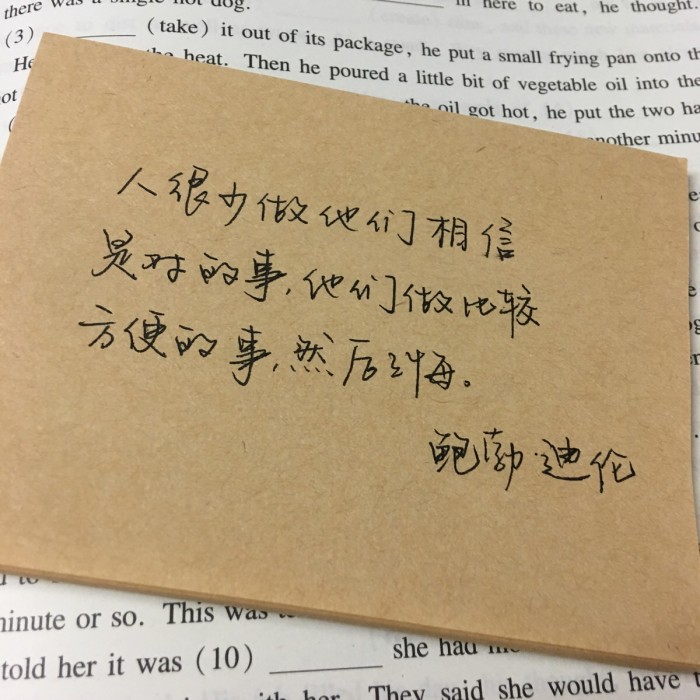 there was a single hot dog.
in here to eat, he thought.
(3) ________ (take) it out of its package, he put a small frying pan onto th
He
the heat. Then he poured a little bit of vegetable oil into the
ot
the oil got hot, he put the two ha
another minu
人很少做他们相信
是对的事,他们做比较
方便的事,然后后悔。
鲍勃·迪伦
minute or so. This was
told her it was (10) ________ she had
They said she would have